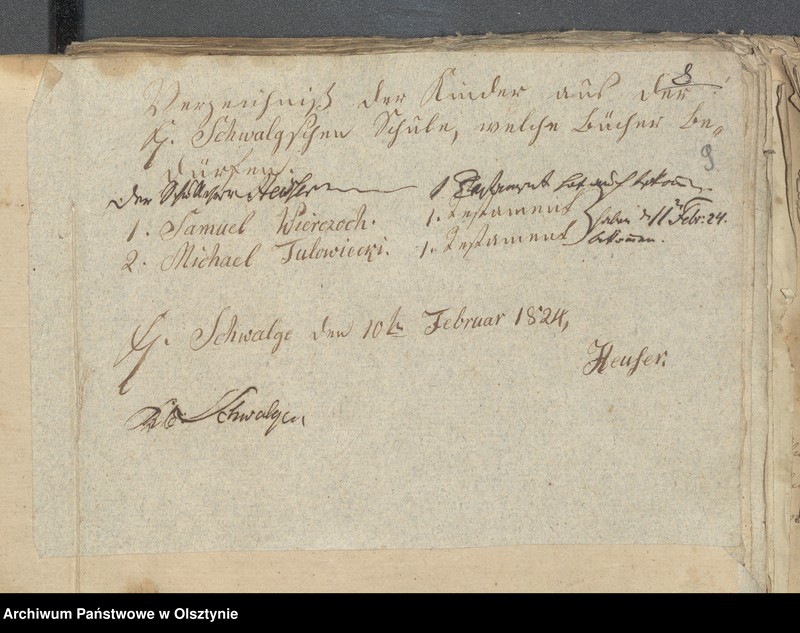 8
Verzeichniß der Kinder aus der
Kl. Schwalgschen Schule, welche Bücher be-
dürfen.
9
Der Schullehrer Heuser 1 Testament hat auch bekom
1. Samuel Wierczoch. 1. Testament
2. Michael Tulowiecki. 1. Testament
haben d 11 Febr. 24.
bekommen.
Schwalge den 10ten Februar 1824,
Heuser.
Schwalgen
Archiwum Państwowe w Olsztynie